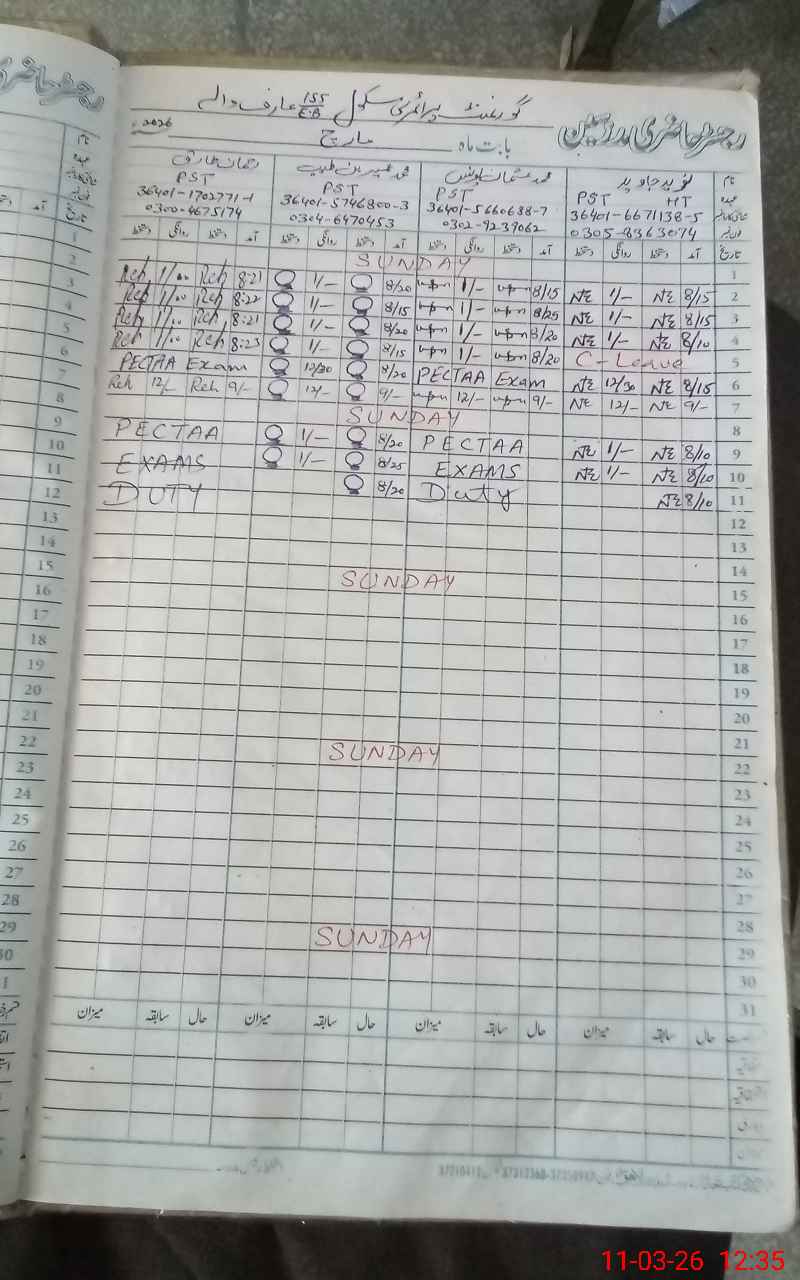 رجسٹر حاضری مدرسین
گورنمنٹ پرائمری سکول 155/E.B عارف والہ
بابت ماہ مارچ 2026
نام نوید جاوید محمد عثمان یونس محمد عمیر بن طیب رحمان طارق
عہدہ PST HT PST PST PST
36401-6671138-5 36401-5660638-7 36401-5746800-3 36401-1702771-1
0305-8363074 0302-9239062 0304-6470453 0300-4675174
تاریخ آمد دستخط روانگی دستخط آمد دستخط روانگی دستخط آمد دستخط روانگی دستخط آمد دستخط روانگی دستخط
1 SUNDAY
2 8/15 NE 1/- NE 8/15 1/- 8/20 1/- 8:21 Reh 1/00 Reh
3 8/15 NE 1/- NE 8/25 1/- 8/15 1/- 8:22 Reh 1/00 Reh
4 8/10 NE 1/- NE 8/20 1/- 8/20 1/- 8:21 Reh 1/00 Reh
5 C-Leave 8/20 1/- 8/15 1/- 8:23 Reh 1/00 Reh
6 8/15 NE 12/30 NE PECTAA Exam 8/20 12/30 PECTAA Exam
7 9/- NE 12/- NE 9/- 12/- 9/- 12/- 9/- Reh 12/- Reh
8 SUNDAY
9 8/10 NE 1/- NE PECTAA 8/20 1/- PECTAA
10 8/10 NE 1/- NE EXAMS 8/25 1/- EXAMS
11 8/10 NE Duty 8/20 DUTY
12
13
14
15 SUNDAY
16
17
18
19
20
21
22 SUNDAY
23
24
25
26
27
28
29 SUNDAY
30
31
حال سابقہ میزان حال سابقہ میزان حال سابقہ میزان حال سابقہ میزان
11-03-26 12:35